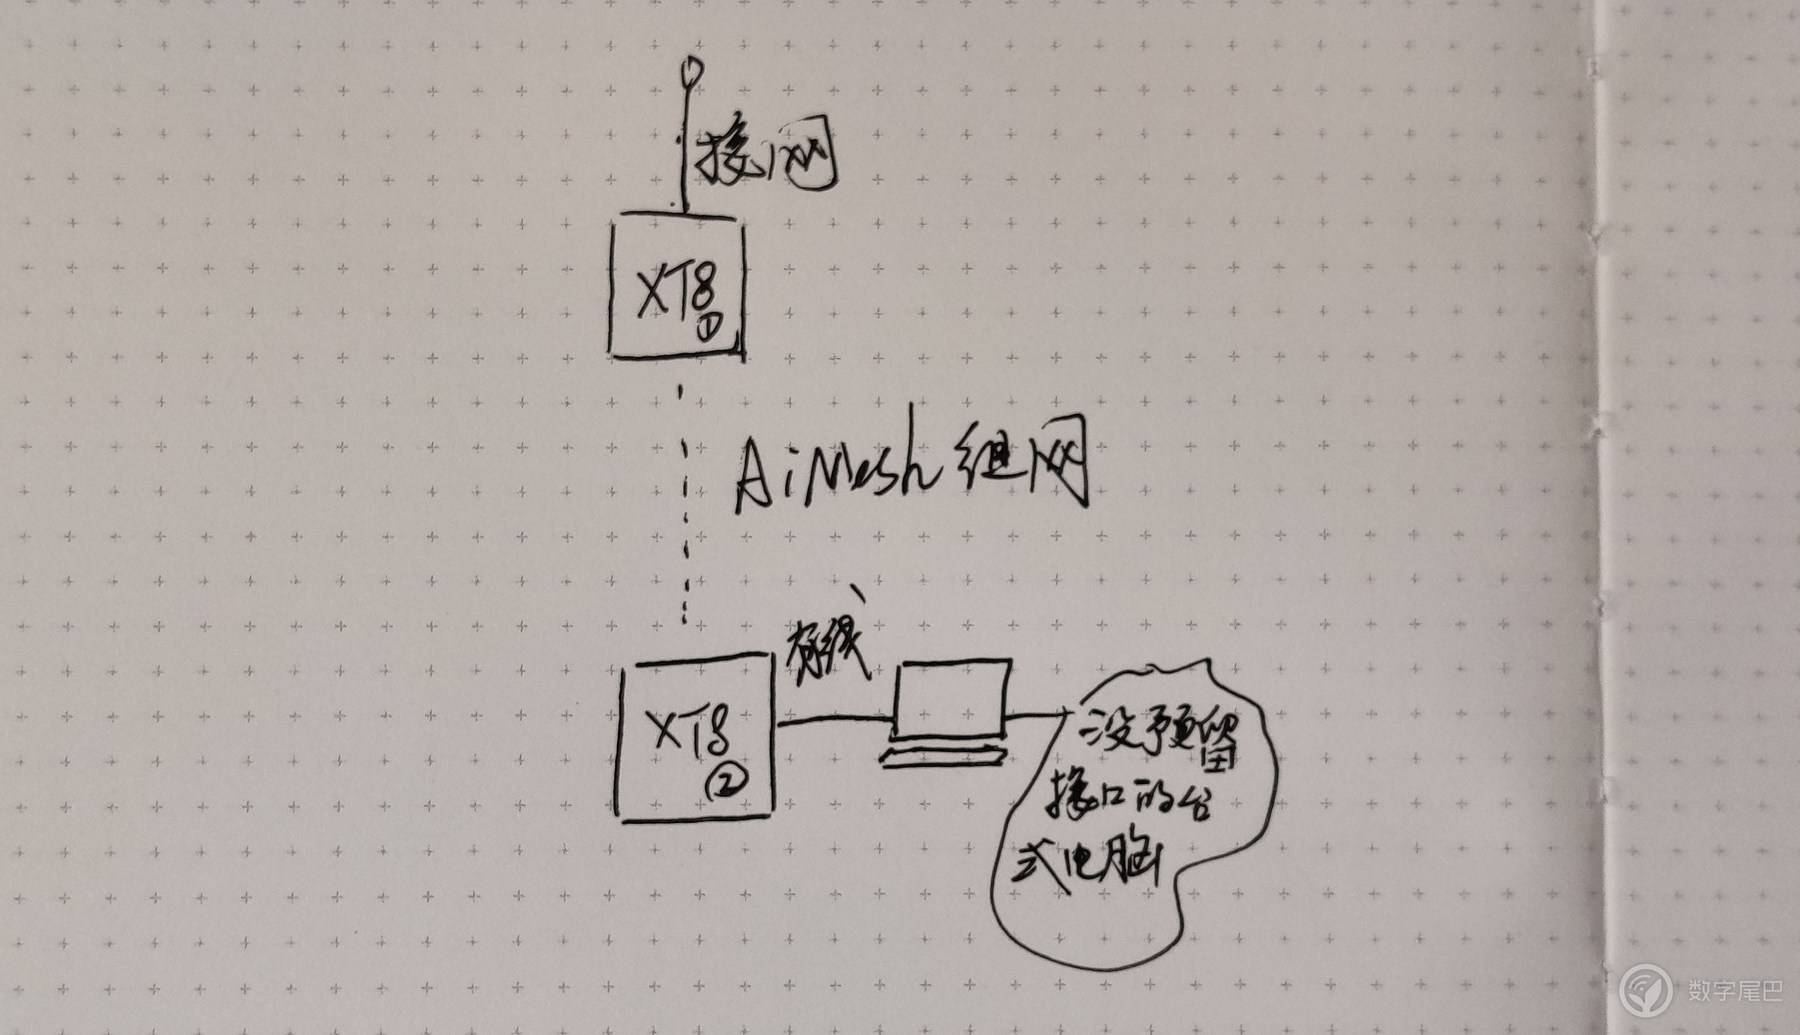 接网
XT8
①
AiMesh组网
有线
XT8
②
没预留
接口的台
式电脑
数字尾巴